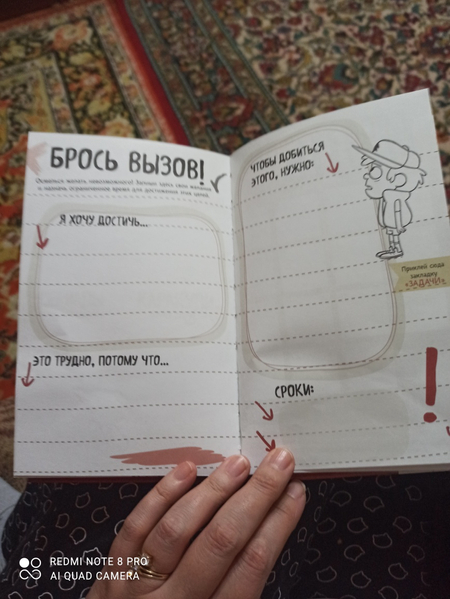 БРОСЬ ВЫЗОВ!
Осмелься желать невозможного! Запиши здесь свои желания
и назначь ограниченное время для достижения этих целей.
Я ХОЧУ ДОСТИЧЬ...
ЭТО ТРУДНО, ПОТОМУ ЧТО...
ЧТОБЫ ДОБИТЬСЯ
ЭТОГО, НУЖНО:
Приклей сюда
закладку
«ЗАДАЧИ»
СРОКИ:
!
REDMI NOTE 8 PRO
AI QUAD CAMERA